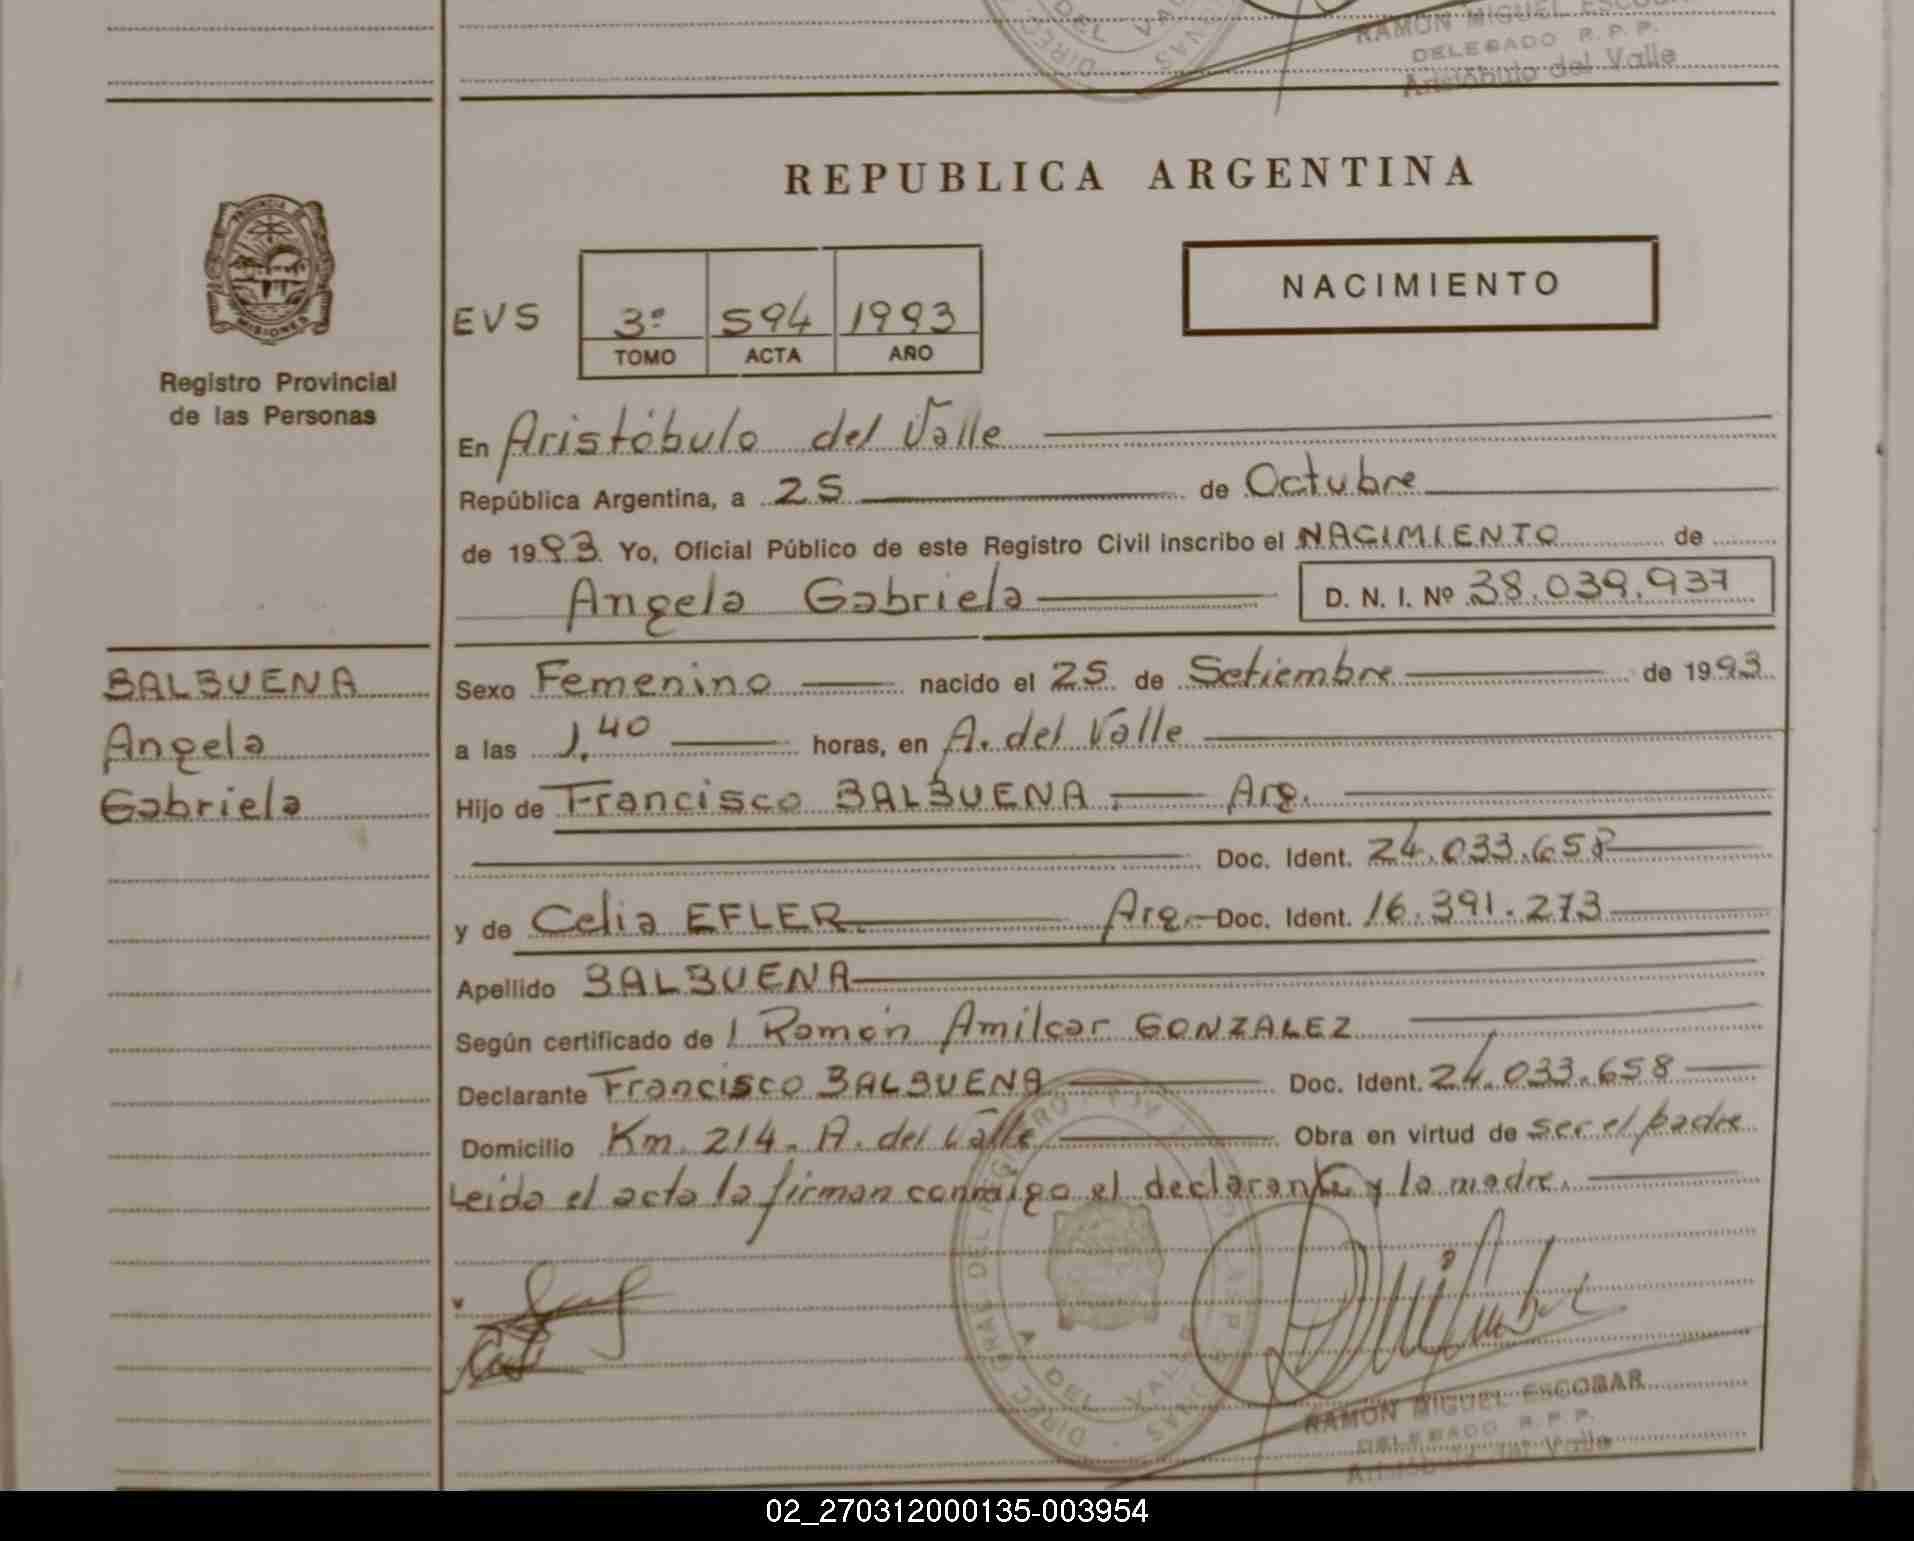 DEL VA
RAMON MIGUEL ESCOBA
DELEGADO R.P.P.
Aristóbulo del Valle
REPUBLICA ARGENTINA
PROVINCIA DE
MISIONES
Registro Provincial
de las Personas
NACIMIENTO
EVS
3º 594 1993
TOMO ACTA AÑO
En Aristóbulo del Valle
República Argentina, a 25 de Octubre
de 1993 Yo, Oficial Público de este Registro Civil inscribo el NACIMIENTO de
Angela Gabriela D. N. I. Nº 38.039.937
BALBUENA
Angela
Gabriela
Sexo Femenino nacido el 25 de Setiembre de 1993
a las 1.40 horas, en A. del Valle
Hijo de Francisco BALBUENA. Arg.
Doc. Ident. 24.033.658
y de Celia EFLER. Arg. Doc. Ident. 16.391.273
Apellido BALBUENA
Según certificado de Ramón Amilcar GONZALEZ
Declarante Francisco BALBUENA Doc. Ident. 24.033.658
Domicilio Km. 214. A. del Valle Obra en virtud de ser el padre
Leida el acta la firman conmigo el declarante y la madre.
A. DEL VALLE
RAMON MIGUEL ESCOBAR
DELEGADO R.P.P.
Aristóbulo del Valle
02_270312000135-003954